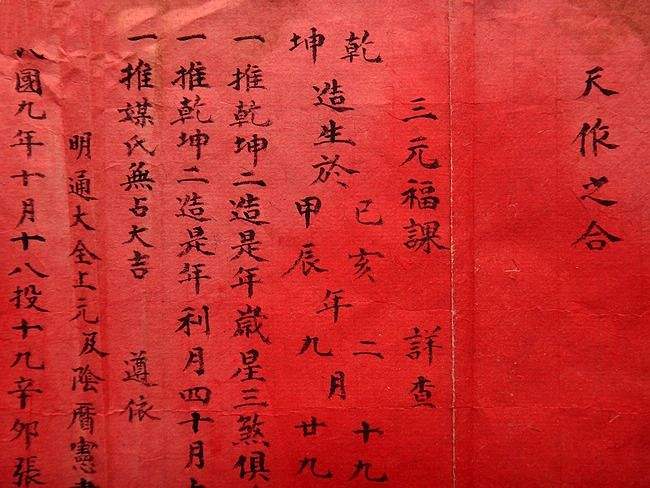 天作之合
三元福課 詳查
乾 己亥 二 十九
造生於 年 月
坤 甲辰 九 廿九
一推乾坤二造是年歲星三煞俱
一推乾坤二造是年利月四十月
一推媒氏無占大吉 遵依
明通大全上元及陰曆憲
國九年十月十八投十九辛卯張